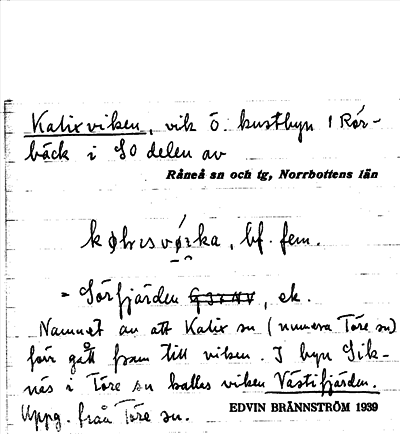 Kalixviken, vik ö. kustbyn 1 Rör-
bäck i SO delen av
Råneå sn och tg, Norrbottens län
bf. fem.
= Sörfjärden G3öNV, ek.
Namnet av att Kalix sn (numera Töre sn)
förr gått fram till viken. I byn Sik-
näs i Töre sn kallas viken Västifjärden.
Uppg. från Töre sn.
EDVIN BRÄNNSTRÖM 1939